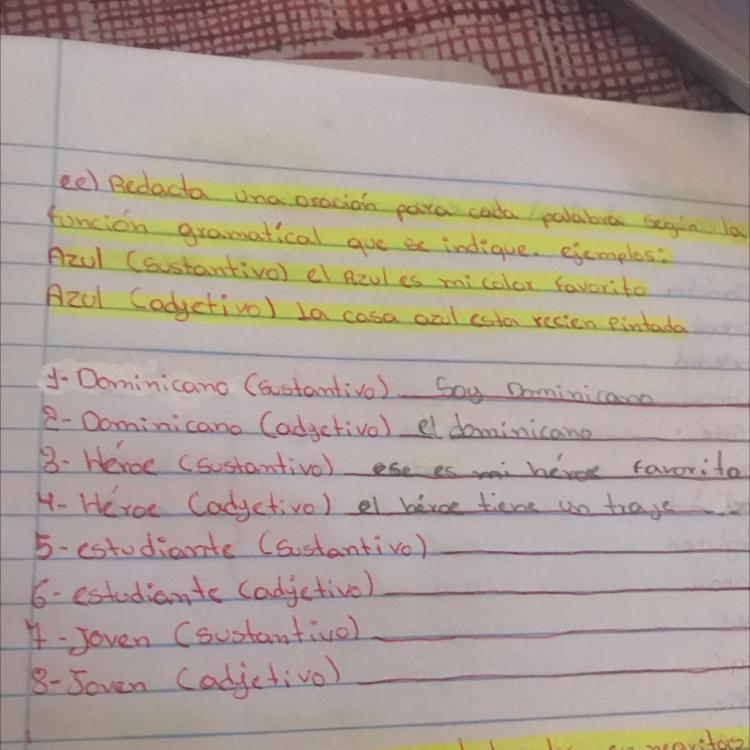 ee) Redacta una oración para cada palabra según la
función gramatical que se indique. ejemplos:
Azul (sustantivo) el Azul es mi color favorito
Azul (adjetivo) La casa azul esta recien pintada
1- Dominicano (sustantivo) Soy Dominicano
2- Dominicano (adjetivo) el dominicano
3- Héroe (sustantivo) ese es mi héroe favorito
4- Héroe (adjetivo) el héroe tiene un traje
5- estudiante (sustantivo)
6- estudiante (adjetivo)
7- Joven (sustantivo)
8- Joven (adjetivo)